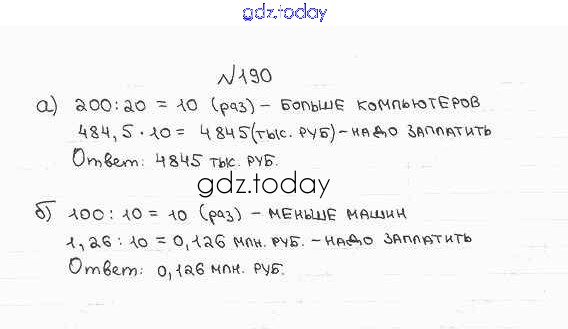 gdz.today
№190
а) 200:20 = 10 (раз) - больше компьютеров
484,5·10 = 4845 (тыс. руб) - надо заплатить
Ответ: 4845 тыс. руб.
gdz.today
б) 100:10 = 10 (раз) - меньше машин
1,26:10 = 0,126 млн. руб. - надо заплатить
Ответ: 0,126 млн. руб.
gdz.today